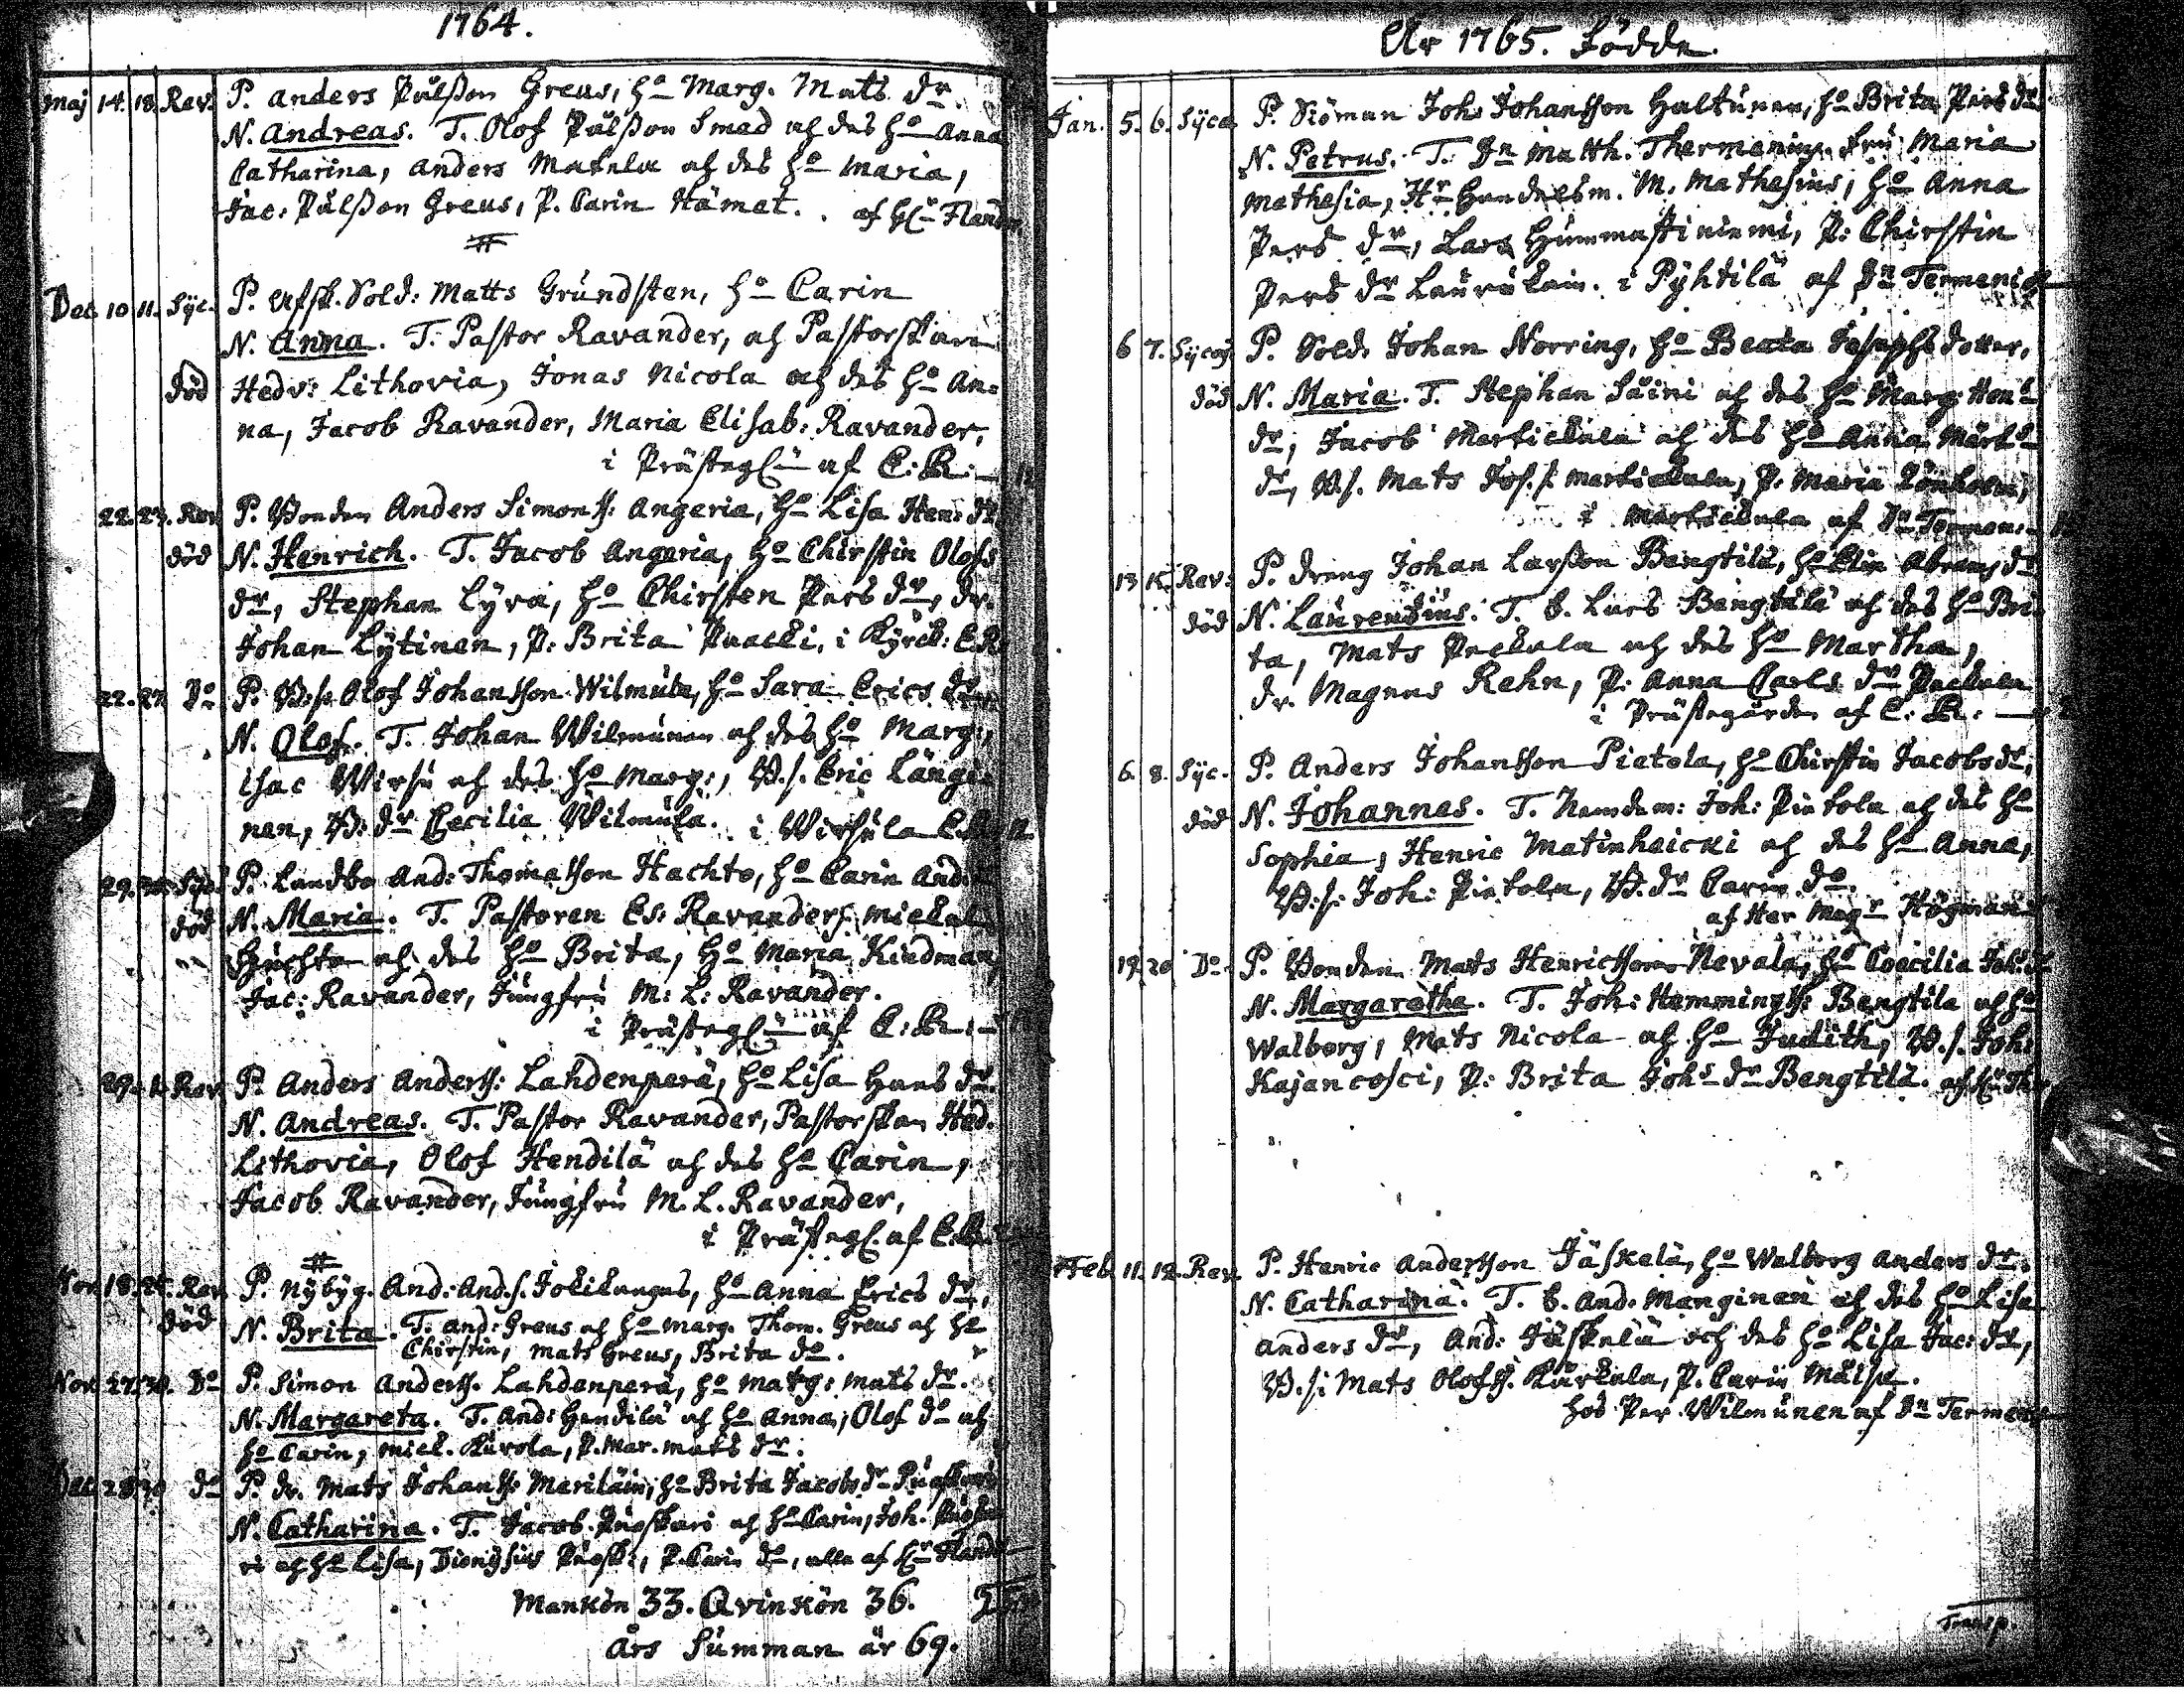 1764.
Maj 14. 18. Rav. P. Anders Pålsson Greus, ho Marg. Mats dr.
N. Andreas. T. Olof Pålsson Smad och des ho Anna
Catharina, Anders Matula och des ho Maria,
Jac: Pålsson Greus, P. Carin Hämet. af Hr Fland
Dec. 10. 11. Syc. P. Afsk. Sold: Matts Grundsten, ho Carin
N. Anna. T. Pastor Ravander, och Pastorskan
död Hedv: Lithovia, Jonas Nicola och des ho An=
na, Jacob Ravander, Maria Elisab: Ravander,
i Prästeg af E: R:
22. 23. Rav. P. Bonden Anders Simonss: Angeria, ho Lisa Hen: dr
död N. Henrich. T. Jacob Angeria, ho Chirstin Olofs
dr, Stephan Lyra, ho Chirsten Pers dr, dr.
Johan Lytinen, P: Brita Paacki, i Kyrck: E.R
22. 27. Do P. B.s. Olof Johansson Wilmula, ho Sara Erics dr
N. Olof. T. Johan Wilmunen och des ho Marg:,
Isac Wirsu och des ho Marg:, B.s. Eric Längi
nen, B: dr Cecilia Wilmula. i Wirsula E.R.
29. 30. Syc. P. Landbo And: Thomasson Hachto, ho Carin And.
död N. Maria. T. Pastoren Es: Ravander, Mickel
Hachto och des ho Brita, ho Maria Kindman,
Jac: Ravander, Jungfru M: L: Ravander.
i Prästeg af E: R:
29. Rav. P. Anders Anderss: Lahdenperä, ho Lisa Hans dr.
N. Andreas. T. Pastor Ravander, Pastorskan Hed.
Lithovia, Olof Hendilä och des ho Carin,
Jacob Ravander, Jungfru M. L. Ravander,
i Prästeg. af E.R.
Nov. 18. 25. Rav. P. Nybyg. And: And.s. Jokikungas, ho Anna Erics dr,
död N. Brita. T. And: Greus och ho Marg. Thom. Greus och ho
Chirstin, Mats Greus, Brita do.
Nov. 27. 30. Do P. Simon Anderss. Lahdenperä, ho Marg: Mats dr.
N. Margareta. T. And: Hendilä och ho Anna, Olof do och
ho Carin, Mick. Kurola, P. Mar. Mats dr.
Dec. 28. 30 do P. dr. Mats Johanss: Meriläin, ho Brita Jacobs dr Puoskari
N. Catharina. T. Jacob Puoskari och ho Carin, Joh. Puoska
ri och ho Lisa, Dionysius Puosk:, P. Carin do, alla af Hr Fland
Mankön 33. Qvinskön 36.
Års Summan är 69.
År 1765. Födde.
Jan. 5. 6. Syca. P. Siöman Joh: Johansson Haltunen, ho Brita Pers dr
N. Petrus. T. Dn Matth. Thermening. Fru Maria
Mathesia, Hr Handelsm. M. Mathesius, ho Anna
Pers dr, Lars Hummastiniemi, P: Chirstin
Pers dr Laurukain. i Pyhtilä af Dn Termenig
6 7. Sycaj. P. Sold. Johan Norring, ho Beata Josephs dotter,
död N. Maria. T. Stephan Saini och des ho Marg. Hens
dr, Jacob Martickala och des ho Anna Märts
dr, B.s. Mats Jos.s. Martickala, P. Maria Rönholm,
i Martickala af Dn Termen:
13 15. Rav: P. dreng Johan Larsson Bengtilä, ho Elin Abrams dr
död N. Laurentius. T. B. Lars Bengtilä och des ho Bri
ta, Mats Peckala och des ho Martha,
dr. Magnus Rehn, P: Anna Carls dr Peckala
i Prästegården af E: R:
6. 8. Syc. P. Anders Johansson Pietola, ho Chirstin Jacobsdr,
död N. Johannes. T. Nemdem: Joh: Pietola och des ho
Sophia, Henric Matinheicki och des ho Anna,
B:s: Joh: Pietola, B: dr Carin do.
af Her Magr Högman
19 20 Do P. Bonden Mats Henricsson Nevala, ho Coecilia Joh: dr
N. Margaretha. T. Joh: Hemmingss: Bengtila och ho
Walborg, Mats Nicola och ho Judith, B.s. Joh:
Kajancosci, P: Brita Johs dr Bengtilä. af Hr Th
Feb. 11. 12. Rav. P. Henric Andersson Jäskelä, ho Walborg Anders dr.
N. Catharina. T. B. And: Manginen och des ho Lisa
Anders dr, And: Jäskelä och des ho Lisa Jac: dr,
B.s: Mats Olofss. Karkala, P. Carin Mälse.
hos Per Wilmunen af Dn Termen
Transp.